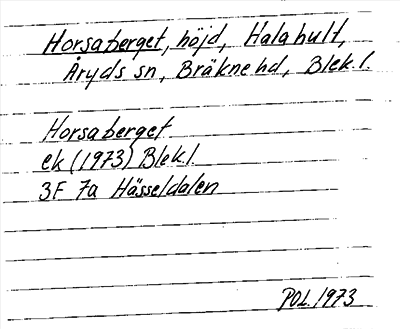 Horsaberget, höjd, Halahult,
Åryds sn, Bräkne hd, Blek. l.
Horsaberget
ek (1973) Blek. l.
3F 7a Hässeldalen
POL. 1973